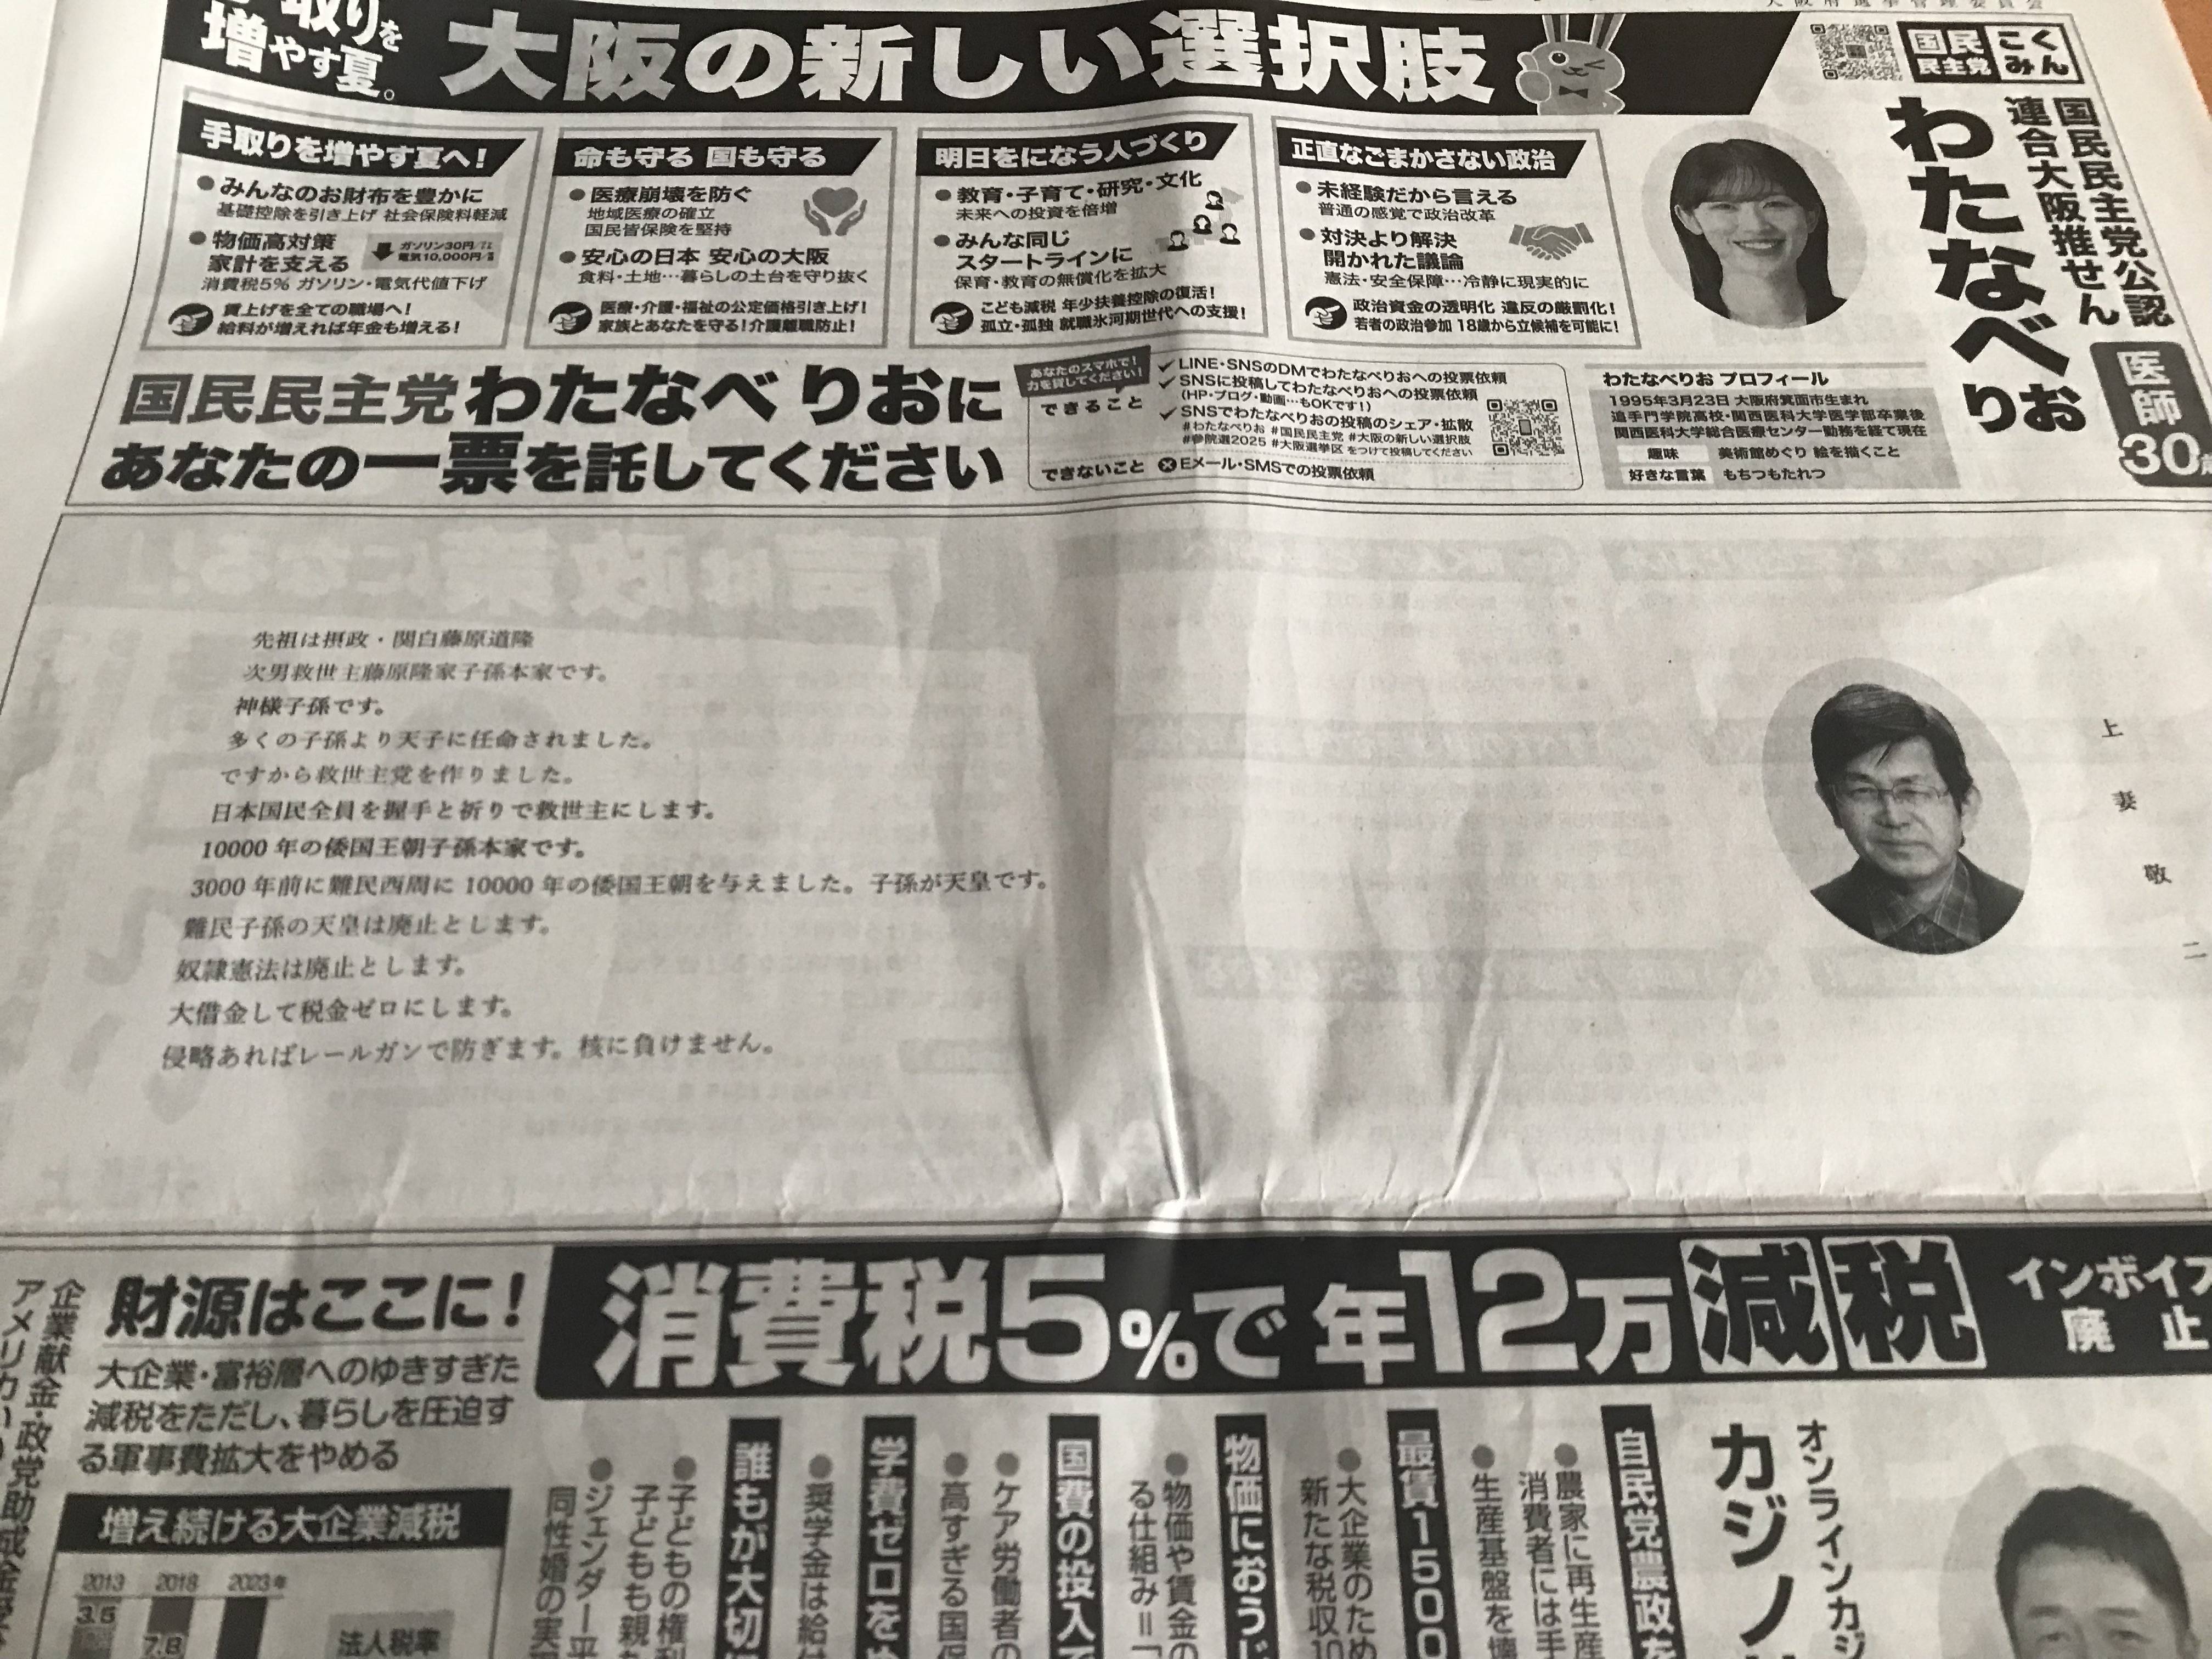 大阪府選挙管理委員会
取りを
増やす夏。
大阪の新しい選択肢
国民
民主党
こく
みん
国民民主党公認
連合大阪推せん
わたなべりお
医師
30
手取りを増やす夏へ!
●みんなのお財布を豊かに
基礎控除を引き上げ 社会保険料軽減
●物価高対策
家計を支える
ガソリン30円/㍑
電気10,000円/
消費税5% ガソリン・電気代値下げ
賃上げを全ての職場へ!
給料が増えれば年金も増える!
命も守る 国も守る
●医療崩壊を防ぐ
地域医療の確立
国民皆保険を堅持
●安心の日本 安心の大阪
食料・土地…暮らしの土台を守り抜く
医療・介護・福祉の公定価格引き上げ!
家族とあなたを守る!介護離職防止!
明日をになう人づくり
●教育・子育て・研究・文化
未来への投資を倍増
●みんな同じ
スタートラインに
保育・教育の無償化を拡大
こども減税 年少扶養控除の復活!
孤立・孤独 就職氷河期世代への支援!
正直なごまかさない政治
●未経験だから言える
普通の感覚で政治改革
●対決より解決
開かれた議論
憲法・安全保障…冷静に現実的に
政治資金の透明化 違反の厳罰化!
若者の政治参加 18歳から立候補を可能に!
国民民主党わたなべ りおに
あなたの一票を託してください
あなたのスマホで!
力を貸してください!
できること
✓LINE・SNSのDMでわたなべりおへの投票依頼
✓SNSに投稿してわたなべりおへの投票依頼
(HP・ブログ・動画…もOKです!)
✓SNSでわたなべりおの投稿のシェア・拡散
#わたなべりお #国民民主党 #大阪の新しい選択肢
#参院選2025 #大阪選挙区 をつけて投稿してください
できないこと ⊗Eメール・SMSでの投票依頼
わたなべりお プロフィール
1995年3月23日 大阪府箕面市生まれ
追手門学院高校・関西医科大学医学部卒業後
関西医科大学総合医療センター勤務を経て現在
趣味 美術館めぐり 絵を描くこと
好きな言葉 もちつもたれつ
上妻敬二
先祖は摂政・関白藤原道隆
次男救世主藤原隆家子孫本家です。
神様子孫です。
多くの子孫より天子に任命されました。
ですから救世主党を作りました。
日本国民全員を握手と祈りで救世主にします。
10000年の倭国王朝子孫本家です。
3000年前に難民西周に10000年の倭国王朝を与えました。子孫が天皇です。
難民子孫の天皇は廃止とします。
奴隷憲法は廃止とします。
大借金して税金ゼロにします。
侵略あればレールガンで防ぎます。核に負けません。
消費税5%で年12万減税
インボイス
廃止
オンラインカジ
カジノ
自民党農政を
●農家に再生産
消費者には手
●生産基盤を壊
最賃1500
●大企業のため
新たな税収10
物価におう
●物価や賃金の
る仕組み=「
国費の投入で
●ケア労働者の
●高すぎる国保
学費ゼロをめ
●奨学金は給
誰もが大切
●子どもの権利
子どもも親も
●ジェンダー平
同性婚の実現
財源はここに!
大企業・富裕層へのゆきすぎた
減税をただし、暮らしを圧迫す
る軍事費拡大をやめる
増え続ける大企業減税
2013 2018 2023年
3.5
7.8
法人税率
企業献金・政党助成金
アメリカ